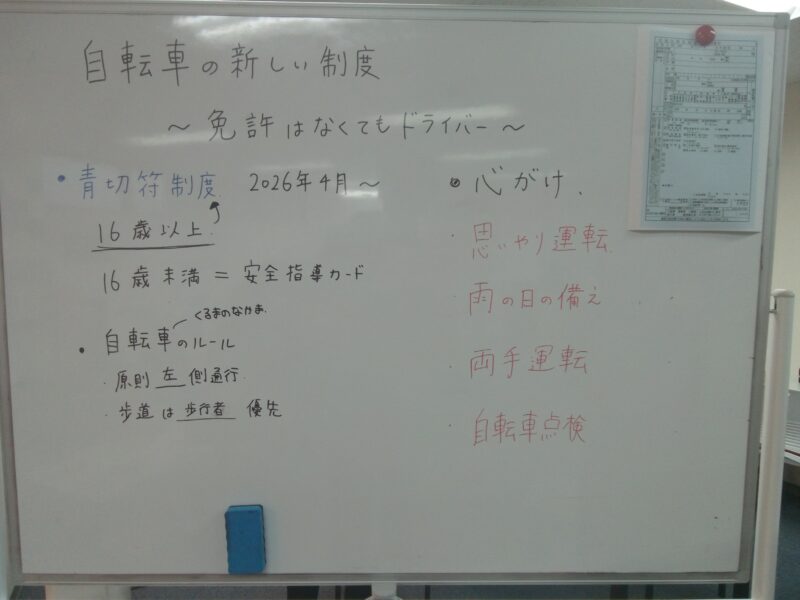 自転車の新しい制度
～免許はなくてもドライバー～
・青切符制度 2026年4月～
16歳以上
16歳未満＝安全指導カード
くるまのなかま
・自転車のルール
・原則 左 側通行
・歩道は歩行者 優先
・心がけ、
・思いやり運転
・雨の日の備え
・両手運転
・自転車点検